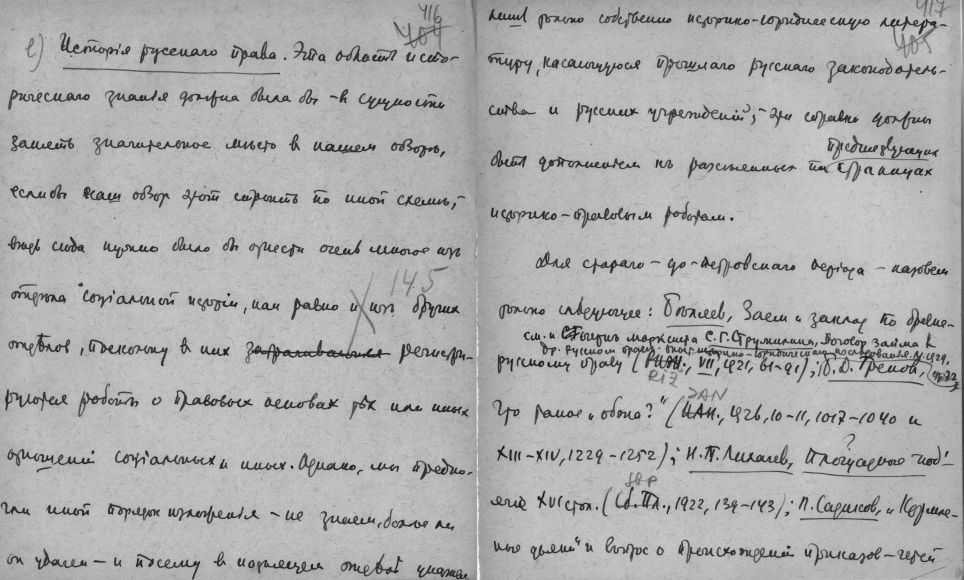 416
404
е) Исторія русскаго права. Эта область исто-
рическаго знанія должна была бы – въ сущности
занять значительное мѣсто в нашем обзорѣ,
если бы наш обзор этот строить по иной схемѣ,–
вѣдь сюда нужно было бы отнести очень многое изъ
отдѣла "соціальной исторіи, как равно и из других
145
отдѣлов, поскольку в них затрагивались регистри-
руются работы о правовых основах тѣх или иных
отношеній соціальных и иных. Однако, мы предпо-
чли иной порядок изложенія – не знаем, более ли
он удачен – и посему в настоящем отдѣлѣ укажем
417
405
лишь только собственно историко-юридическую литера-
туру, касающуюся прошлаго русскаго законодатель-
ства и русских учрежденій; – эти справки должны
быть дополнены къ разсѣянным на предшедвующих страницах
историко-правовым работам.
Для стараго – до-петровскаго періода – назовем
только слѣдующее: Бѣляев, Заем и заклад по древне-
см. и С. Г. Струмилина, Договор займа в
др. русском праве: историко-юридическ. 1929,
русскому праву (РИЖ., VII, 1921, 61–91); В. Д. Греков,
РИЖ
ЗАN
Что такое "обжа?" (ИАН., 1926, 10–11, 1017–1040 и
XIII–XIV, 1229–1252); Н. П. Лихачев, Площадные под!
?
ячіе XVI стол. (Сб. Пл., 1922, 139–143); П. Садиков, "Кормле-
ные дьяки" и вопрос о происхожденіи приказов –